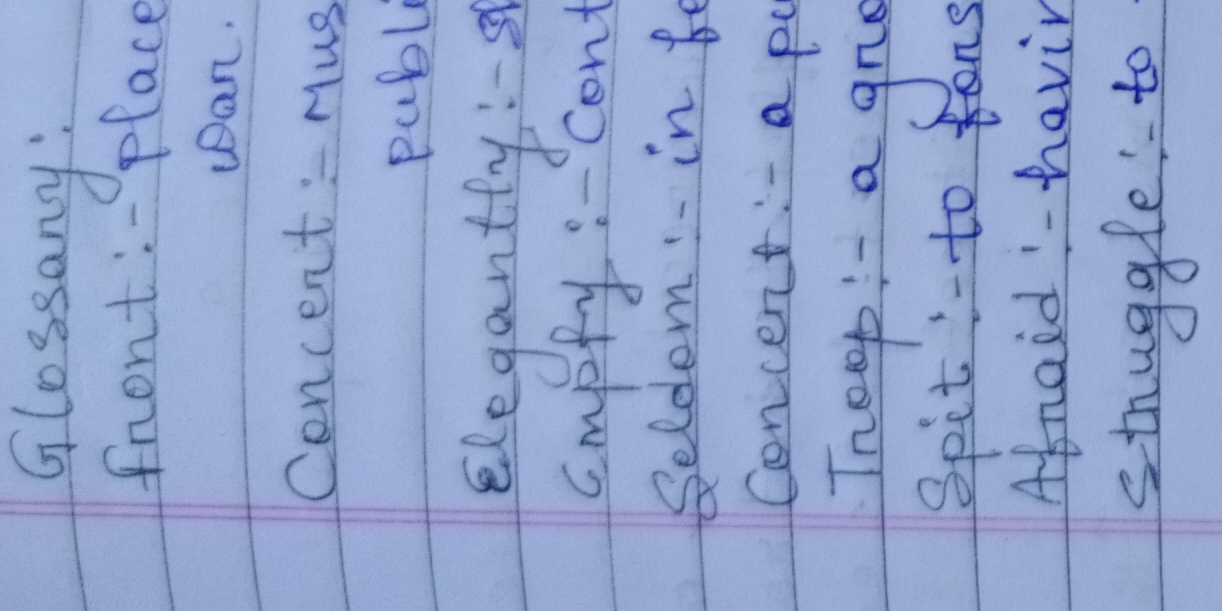 Glossary:
front:- place
war.
Concert:- Mus
publi
Elegantly:- s
Empty:- Cont
Seldom:- in fe
Concert:- a pu
Troop:- a gro
Spit:- to fors
Afraid:- havin
Struggle:- to